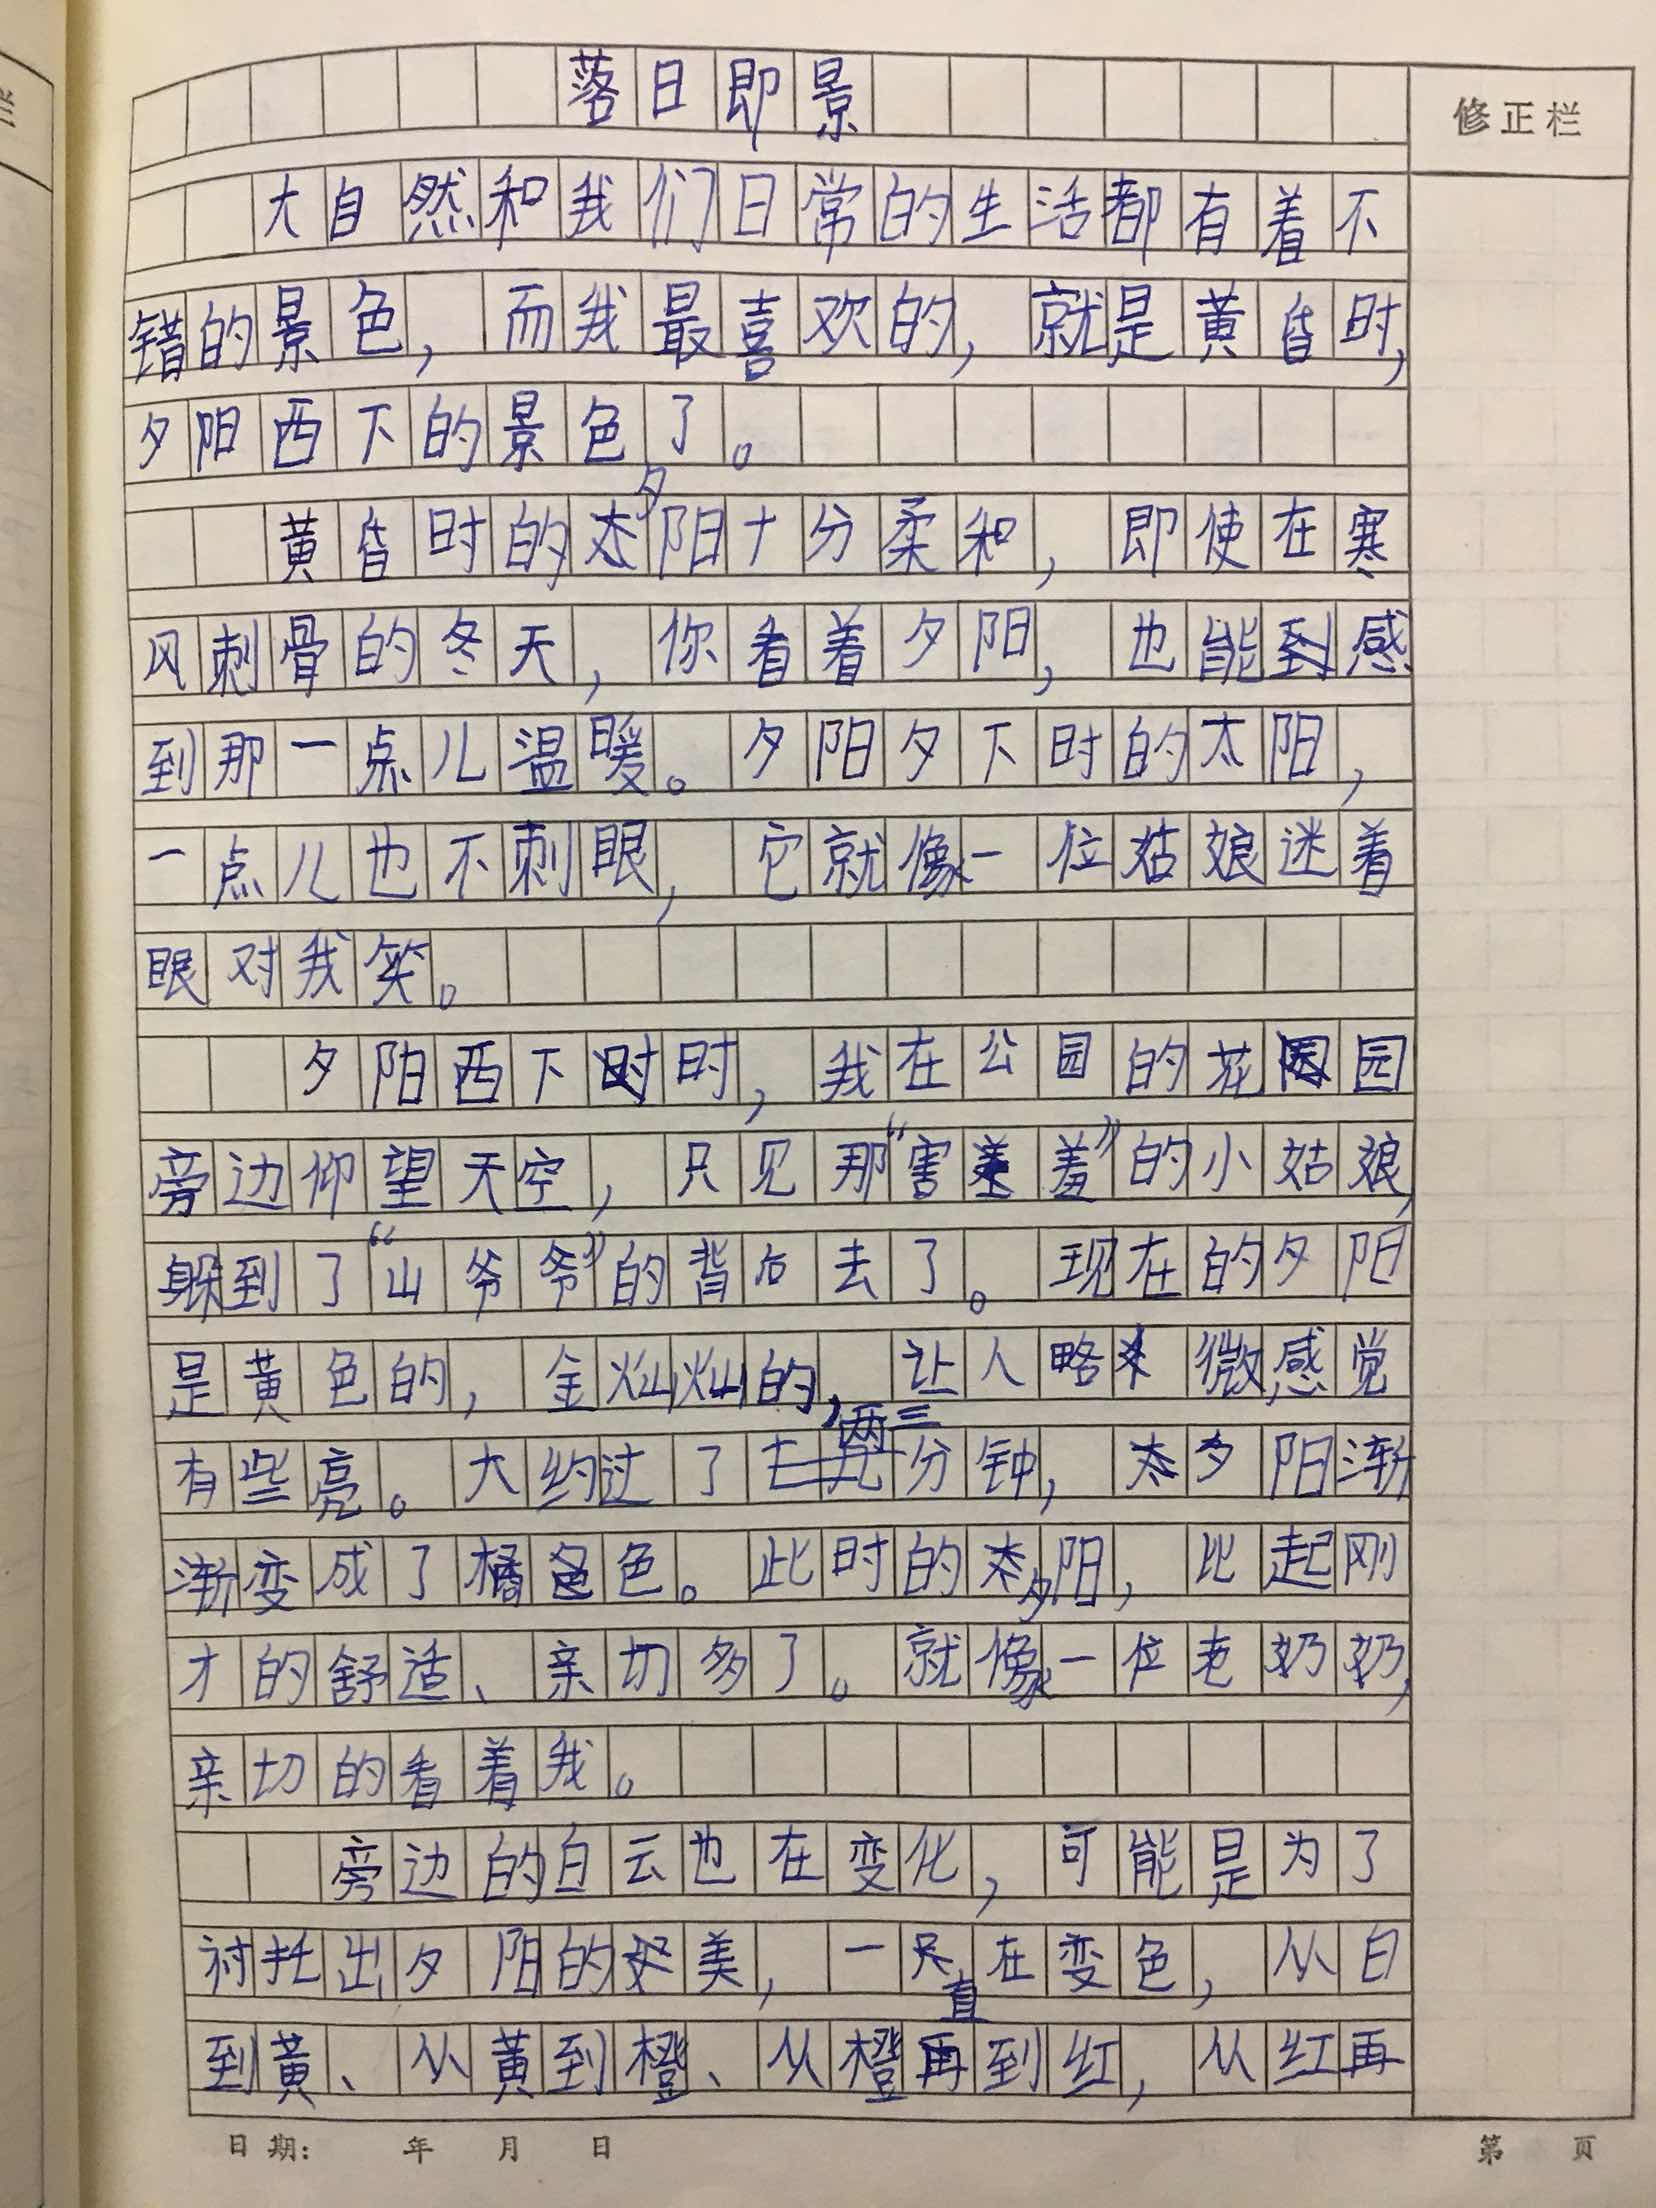 落日即景
修正栏
大自然和我们日常的生活都有着不
错的景色，而我最喜欢的，就是黄昏时，
夕阳西下的景色了。
黄昏时的夕阳十分柔和，即使在寒
风刺骨的冬天，你看着夕阳，也能感
到那一点儿温暖。夕阳夕下时的太阳，
一点儿也不刺眼，它就像一位姑娘迷着
眼对我笑。
夕阳西下时，我在公园的花园
旁边仰望天空，只见那“害羞”的小姑娘，
躲到了“山爷爷”的背后去了。现在的夕阳
是黄色的，金灿灿的，让人略微感觉
有些亮。大约过了两三分钟，夕阳渐
渐变成了橘色。此时的夕阳，比起刚
才的舒适、亲切多了。就像一位老奶奶，
亲切的看着我。
旁边的白云也在变化，可能是为了
衬托出夕阳的美，一直在变色，从白
到黄、从黄到橙、从橙再到红，从红再
日期： 年 月 日
第 页